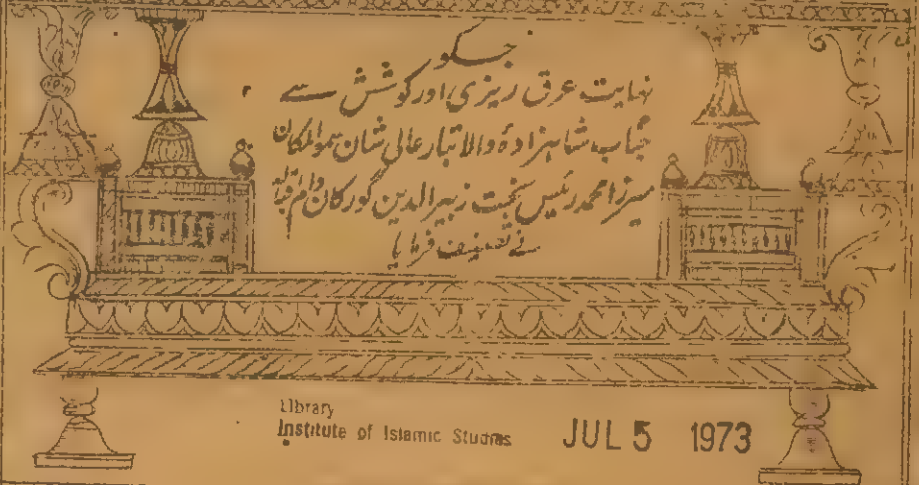 جسکو
نہایت عرق ریزی اور کوشش سے
جناب شاہزادۂ والا تبار عالی شان سموالمکان
میرزا محمد رئیس بخت زبیر الدین گورکان دام اقبالہ
نے تصنیف فرمایا
Library
Institute of Islamic Studies
JUL 5 1973